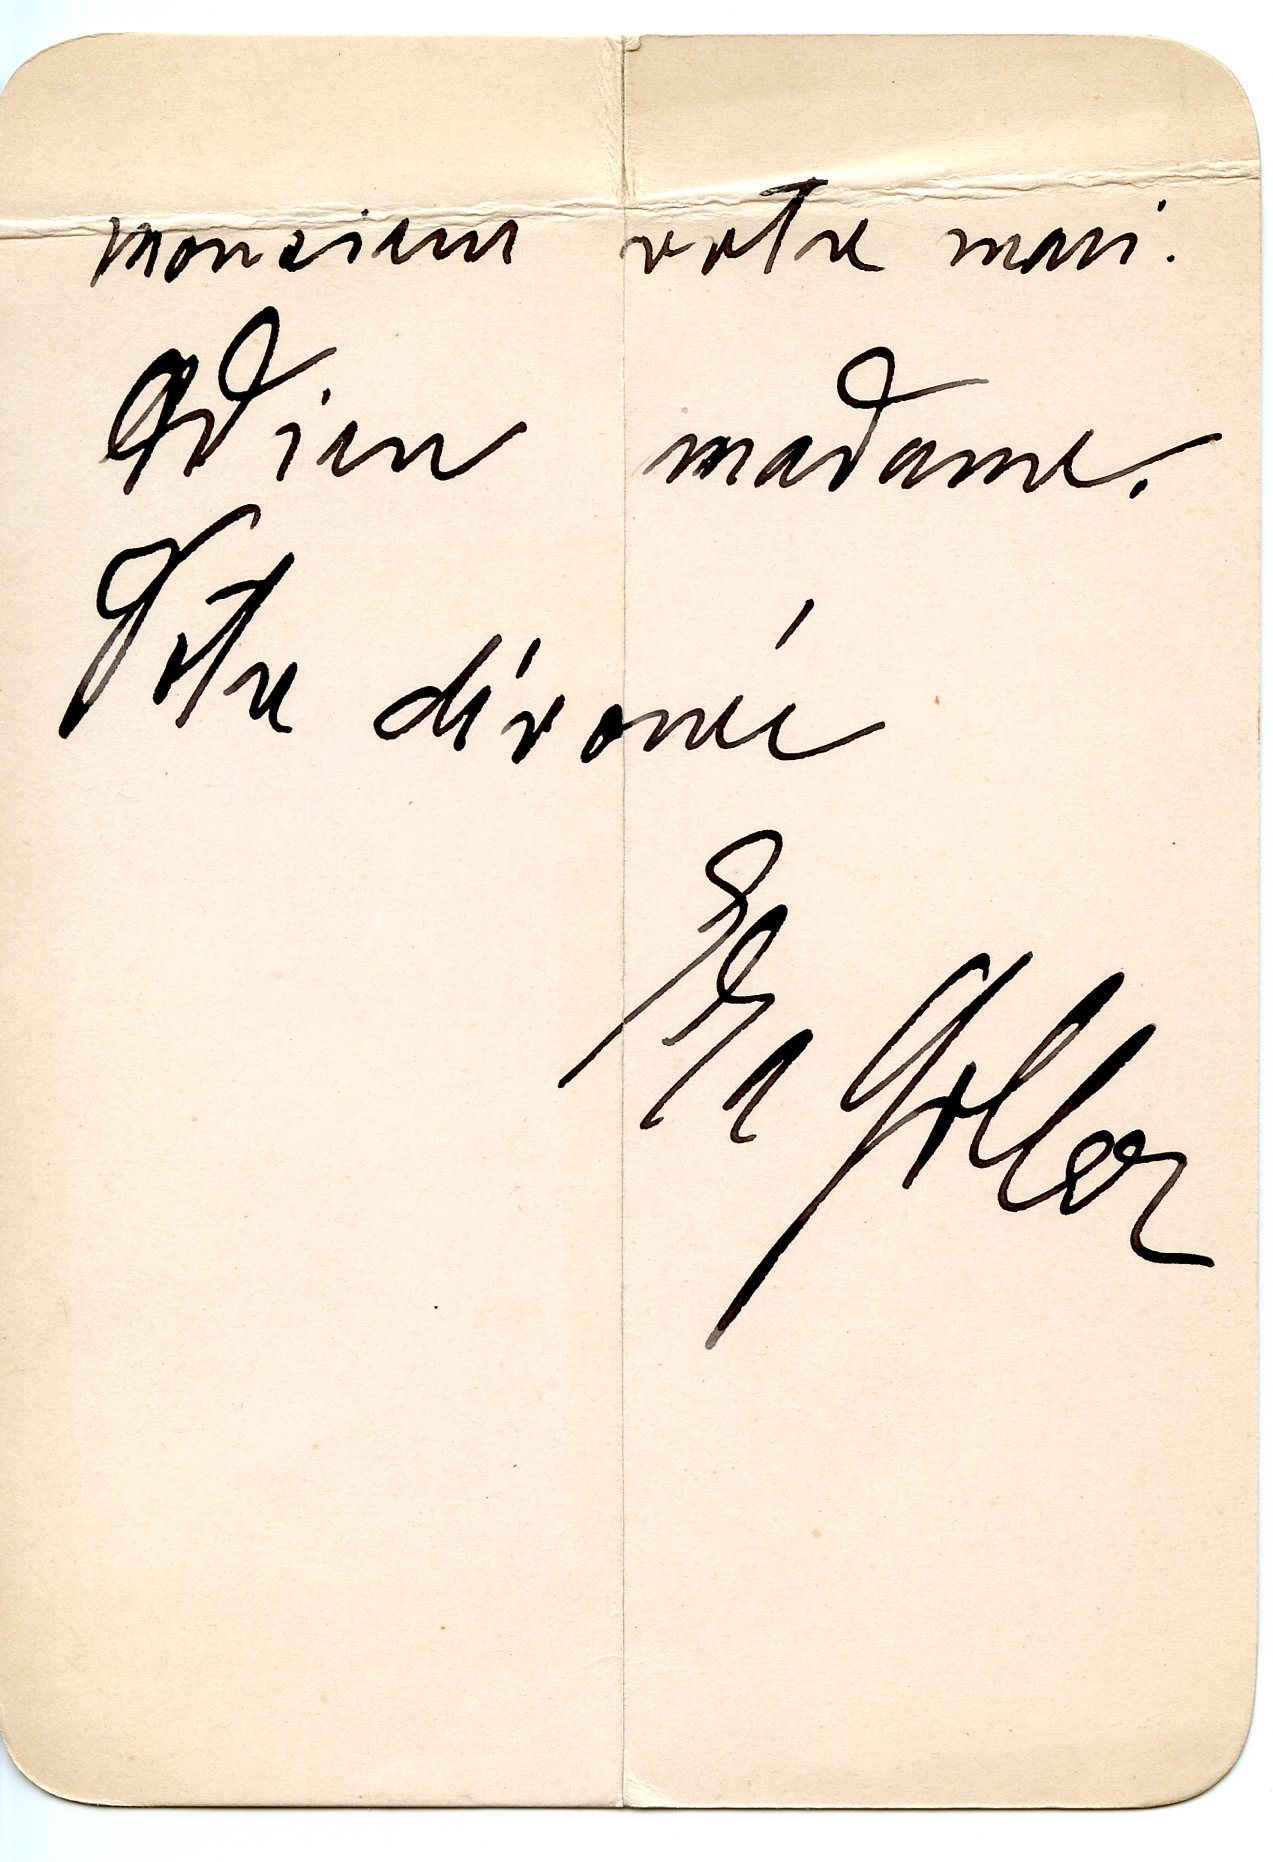 monsieur votre mari.
Adieu madame.
Votre dévouée